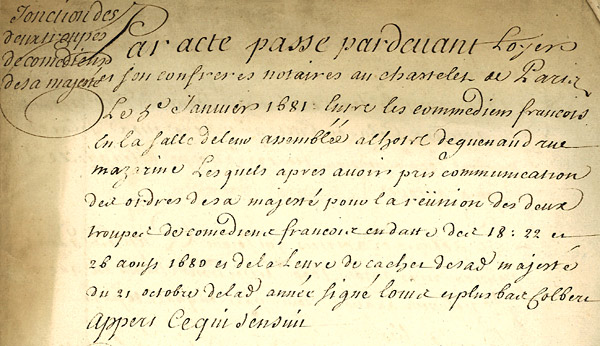 Jonction des
deux troupes
de comediens
de sa majeté
Par acte passé pardevant Loyer
et son confreres notaires au chastelet de Paris
Le 5e Janvier 1681 Entre les commediens francois
En la salle de leur assemblée a lhotel de guenaud rue
mazarine Lesquels apres avoir pris communication
des ordres de sa majesté pour la reünion des deux
troupes de comediens francois en datte des 18: 22 et
26 aoust 1680 et de la Lettre de cachet de sad. majesté
du 21 octobre de lad. année signé louis et plus bas Colbert
appert Ce qui s'ensuit